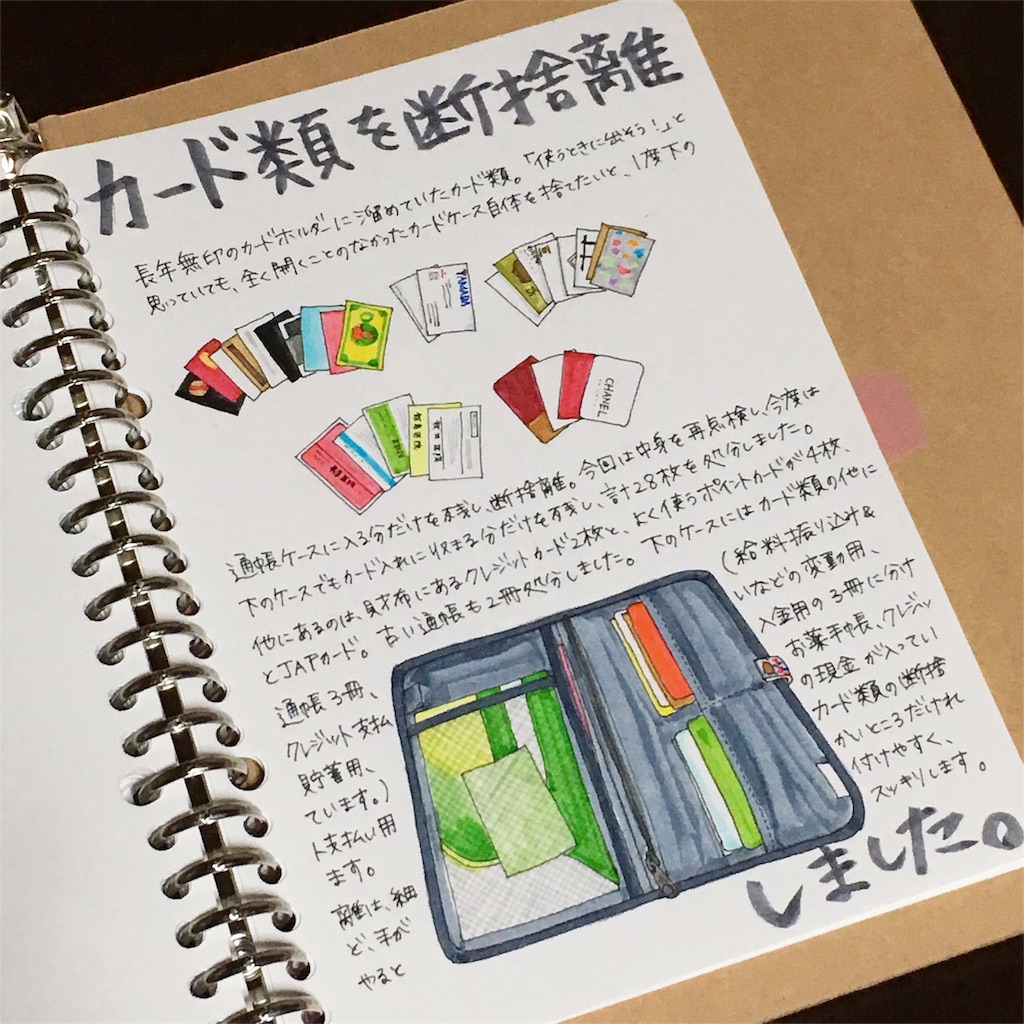 カード類を断捨離
長年無印のカードホルダーに溜めていたカード類。「使うときに出そう!」と
思っていても、全く開くことのなかったカードケース自体を捨てたいと、1度下の
YAMADA
CHANEL
通帳ケースに入る分だけを残し断捨離。今回は中身を再点検し、今度は
下のケースでもカード入れに収まる分だけを残し、計28枚を処分しました。
他にあるのは、財布にあるクレジットカード2枚と、よく使うポイントカードが4枚、
とJAFカード。古い通帳も2冊処分しました。下のケースにはカード類の他に
通帳3冊、(給料振り込み&
クレジット支払いなどの変動用、
貯蓄用、入金用の3冊に分け
ています。)お薬手帳、クレジッ
ト支払い用の現金が入ってい
ます。カード類の断捨
離は、細かいところだけれ
ど、手が付けやすく、
やるとスッキリします。
しました。